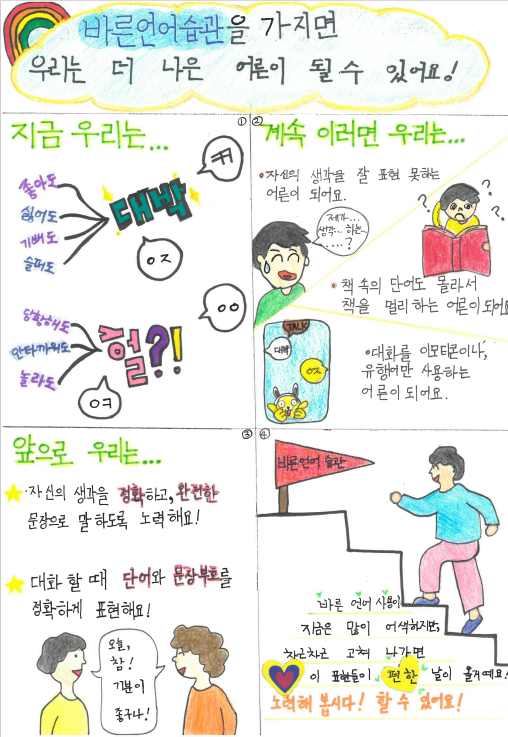 바른언어습관을 가지면
우리는 더 나은 어른이 될 수 있어요!
①
지금 우리는...
좋아도
싫어도
기뻐도
슬퍼도
대박
ㅋㅋ
ㅇㅈ
당황해도
안타까워도
놀라도
헐?!
ㅇㅇ
ㅇㅋ
②
계속 이러면 우리는...
•자신의 생각을 잘 표현 못하는
어른이 되어요.
제가...
생각... 하는...
....?
? ? ? ?
•책 속의 단어도 몰라서
책을 멀리 하는 어른이 되어요
TALK
대박
ㅇㅈ
•대화를 이모티콘이나,
유행어만 사용하는
어른이 되어요.
③
앞으로 우리는...
·자신의 생각을 정확하고, 완전한
문장으로 말하도록 노력해요!
대화 할 때 단어와 문장부호를
정확하게 표현해요!
오늘,
참!
기분이
좋구나!
④
바른언어 습관
바른 언어 사용이
지금은 많이 어색하지만,
차근차근 고쳐 나가면
이 표현들이 편한 날이 올거예요!
노력해 봅시다! 할 수 있어요!